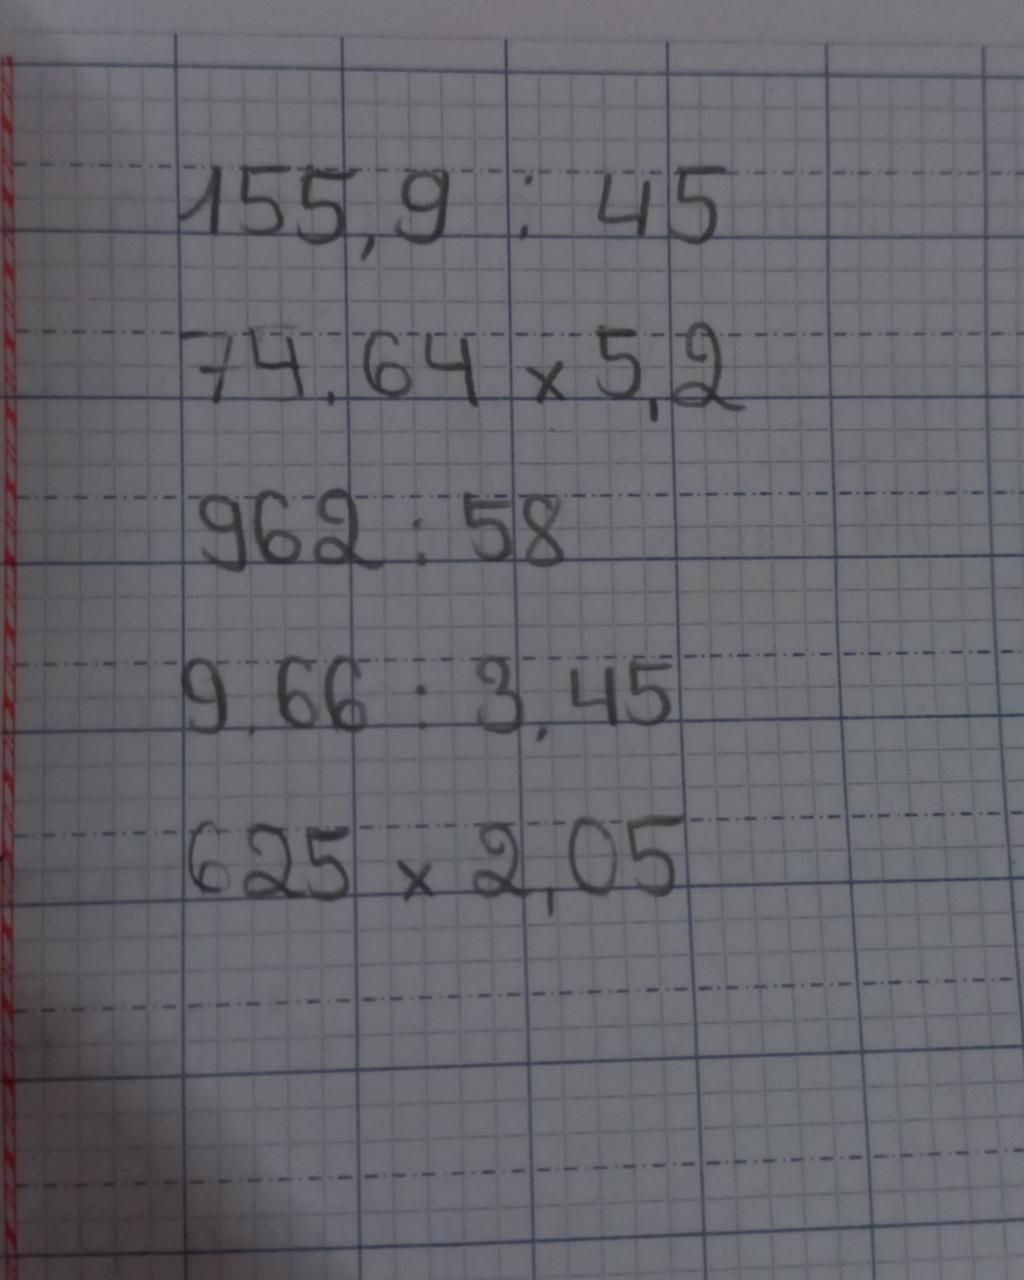 155,9 : 45
74.64 x 5,2
962 : 58
9,66 : 3,45
625 x 2,05